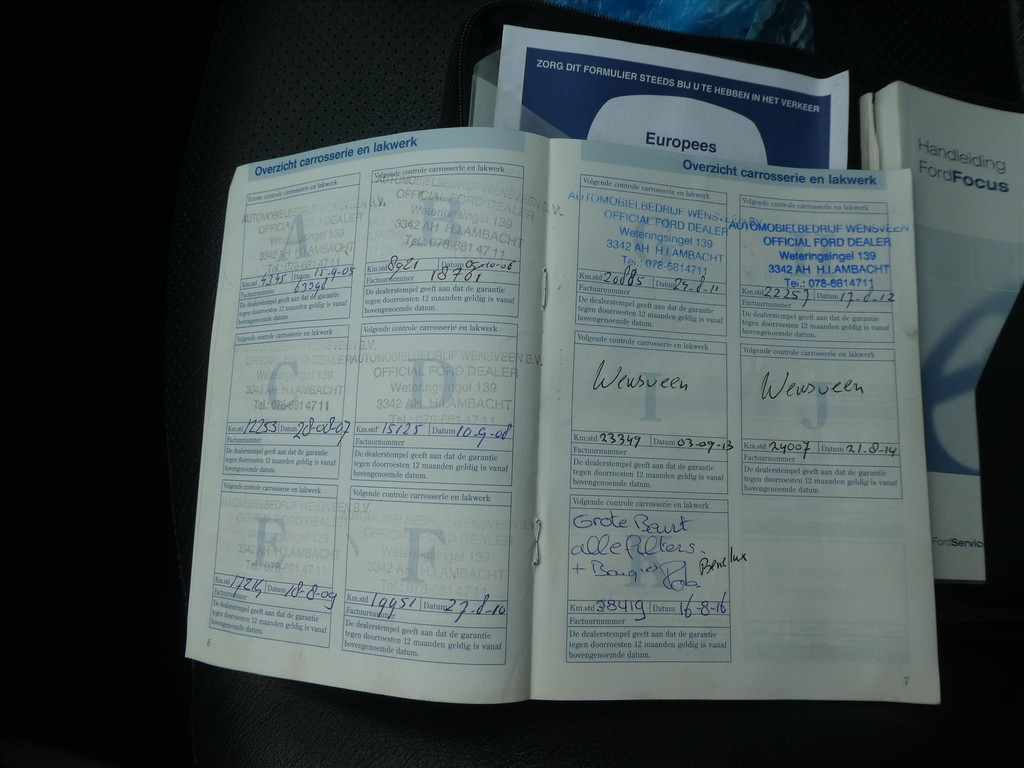 ZORG DIT FORMULIER STEEDS BIJ U TE HEBBEN IN HET VERKEER
Europees
Handleiding
FordFocus
FordServic
Overzicht carrosserie en lakwerk
Eerste controle carrosserie en lakwerk
A
AUTOMOBIELBEDRIJF
OFFICIAL
Weteringsingel
3342 AH H.I. AMBACHT
Tel.: 078-6814711
Km.std 4345 Datum 15-9-05
Factuurnummer 63248
De dealerstempel geeft aan dat de garantie
tegen doorroesten 12 maanden geldig is vanaf
bovengenoemde datum.
Volgende controle carrosserie en lakwerk
AUTOMOBIELBEDRIJF WENSVEEN B.V.
OFFICIAL FORD DEALER
Weteringsingel 139
3342 AH H.I. AMBACHT
Tel.: 078-6814711
Km.std 8921 Datum 05-10-06
Factuurnummer 18701
De dealerstempel geeft aan dat de garantie
tegen doorroesten 12 maanden geldig is vanaf
bovengenoemde datum.
Volgende controle carrosserie en lakwerk
C
OFFICIAL FORD DEALER
3342 AH H.I. AMBACHT
Tel.: 078-6814711
Km.std 12253 Datum 28-08-07
Factuurnummer
De dealerstempel geeft aan dat de garantie
tegen doorroesten 12 maanden geldig is vanaf
bovengenoemde datum.
Volgende controle carrosserie en lakwerk
D
AUTOMOBIELBEDRIJF WENSVEEN B.V.
OFFICIAL FORD DEALER
Weteringsingel 139
3342 AH H.I. AMBACHT
Tel.: 078-6814711
Km.std 15125 Datum 10-9-08
Factuurnummer
De dealerstempel geeft aan dat de garantie
tegen doorroesten 12 maanden geldig is vanaf
bovengenoemde datum.
Volgende controle carrosserie en lakwerk
E
Km.std 17214 Datum 18-8-09
Factuurnummer
De dealerstempel geeft aan dat de garantie
tegen doorroesten 12 maanden geldig is vanaf
bovengenoemde datum.
Volgende controle carrosserie en lakwerk
F
AUTOMOBIELBEDRIJF WENSVEEN
OFFICIAL FORD DEALER
Weteringsingel 139
3342 AH H.I. AMBACHT
Km.std 19951 Datum 27-8-10
Factuurnummer
De dealerstempel geeft aan dat de garantie
tegen doorroesten 12 maanden geldig is vanaf
bovengenoemde datum.
6
Overzicht carrosserie en lakwerk
Volgende controle carrosserie en lakwerk
AUTOMOBIELBEDRIJF WENSVEEN B.V.
OFFICIAL FORD DEALER
Weteringsingel 139
3342 AH H.I. AMBACHT
Tel.: 078-6814711
Km.std 20885 Datum 24-8-11
Factuurnummer
De dealerstempel geeft aan dat de garantie
tegen doorroesten 12 maanden geldig is vanaf
bovengenoemde datum.
Volgende controle carrosserie en lakwerk
AUTOMOBIELBEDRIJF WENSVEEN
OFFICIAL FORD DEALER
Weteringsingel 139
3342 AH H.I. AMBACHT
Tel.: 078-6814711
Km.std 22257 Datum 17-8-12
Factuurnummer
De dealerstempel geeft aan dat de garantie
tegen doorroesten 12 maanden geldig is vanaf
bovengenoemde datum.
Volgende controle carrosserie en lakwerk
Wensveen
I
Km.std 23349 Datum 03-09-13
Factuurnummer
De dealerstempel geeft aan dat de garantie
tegen doorroesten 12 maanden geldig is vanaf
bovengenoemde datum.
Volgende controle carrosserie en lakwerk
Wensveen
J
Km.std 24007 Datum 21-8-14
Factuurnummer
De dealerstempel geeft aan dat de garantie
tegen doorroesten 12 maanden geldig is vanaf
bovengenoemde datum.
Volgende controle carrosserie en lakwerk
Grote Beurt
alle filters.
+ Bougies Benelux
K
Km.std 38419 Datum 16-8-16
Factuurnummer
De dealerstempel geeft aan dat de garantie
tegen doorroesten 12 maanden geldig is vanaf
bovengenoemde datum.
7